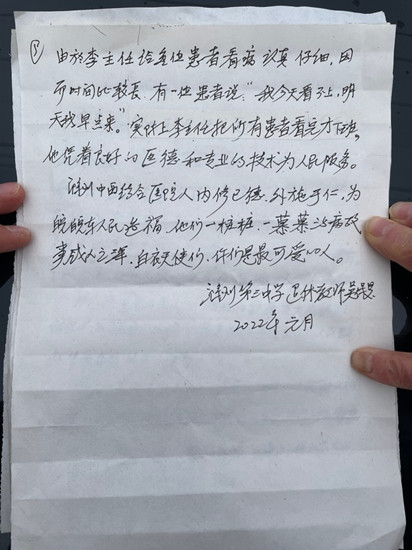 ⑤
由於李主任给每位患者看病认真仔细,因
而时间比较长,有一位患者说:“我今天看不上,明
天我早点来。”实际上李主任把所有患者看完才下班,
他凭着良好的医德和专业的技术为人民服务。
中西结合医院人内修己德,外施于仁,为
皖东人民造福,他们一桩桩,一幕幕治病
事成,白衣天使们,你们是最可爱的人。
第三中学退休教师
2022年元月